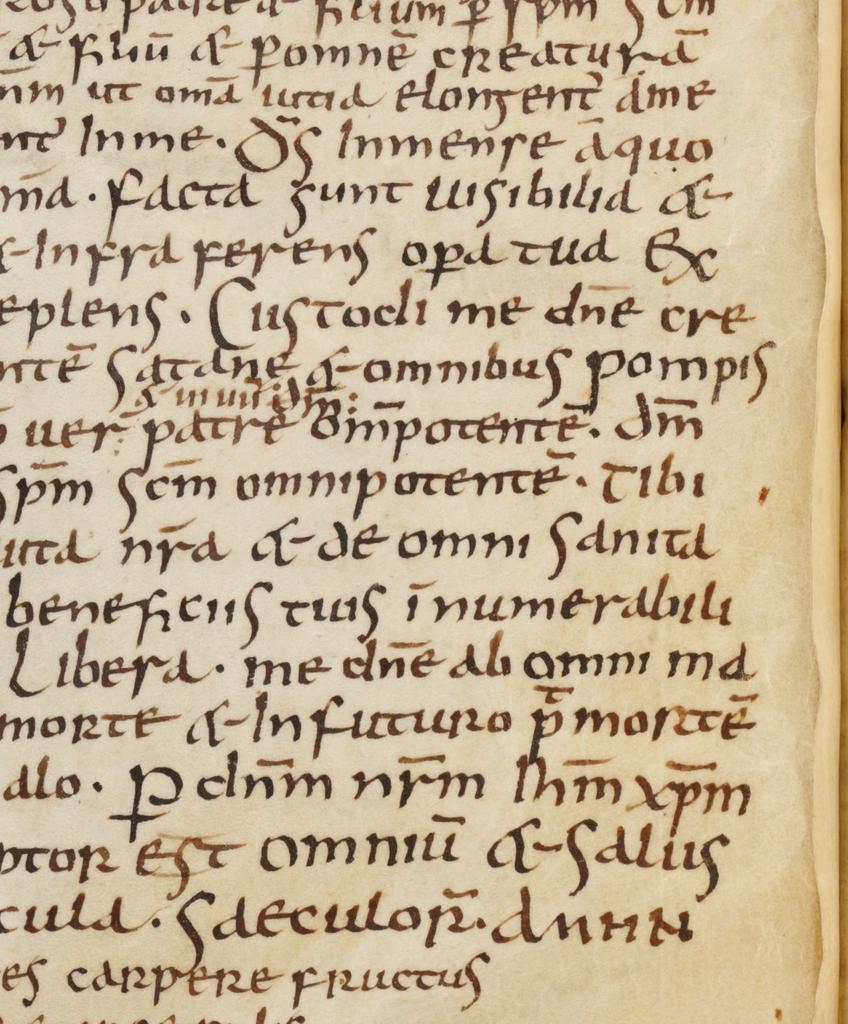 filium p̄ spm̄ scm
& filiū & p omnē creaturā
nm̄ ut omā uitia elongent̄ ame
Inme. Ds̄ Inmense āquo
facta sunt uisibilia &
&-Infra ferens opa tua Ex
eplens. Custodi me dnē cre
satane & omnibus pompis
uer patrē om̄potentē. dm̄
spm̄ scm̄ omnipotentē. Tibi
nr̄a & de omni sanita
beneficiis tuis īnumerabili
Libera. me dnē ab omni ma
morte & In futuro p̄ mortē
alo. P dnm̄ nr̄m Ihm̄ xpm̄
ptor est omniū & salus
cula. saeculor̄. amen
es carpere fructus